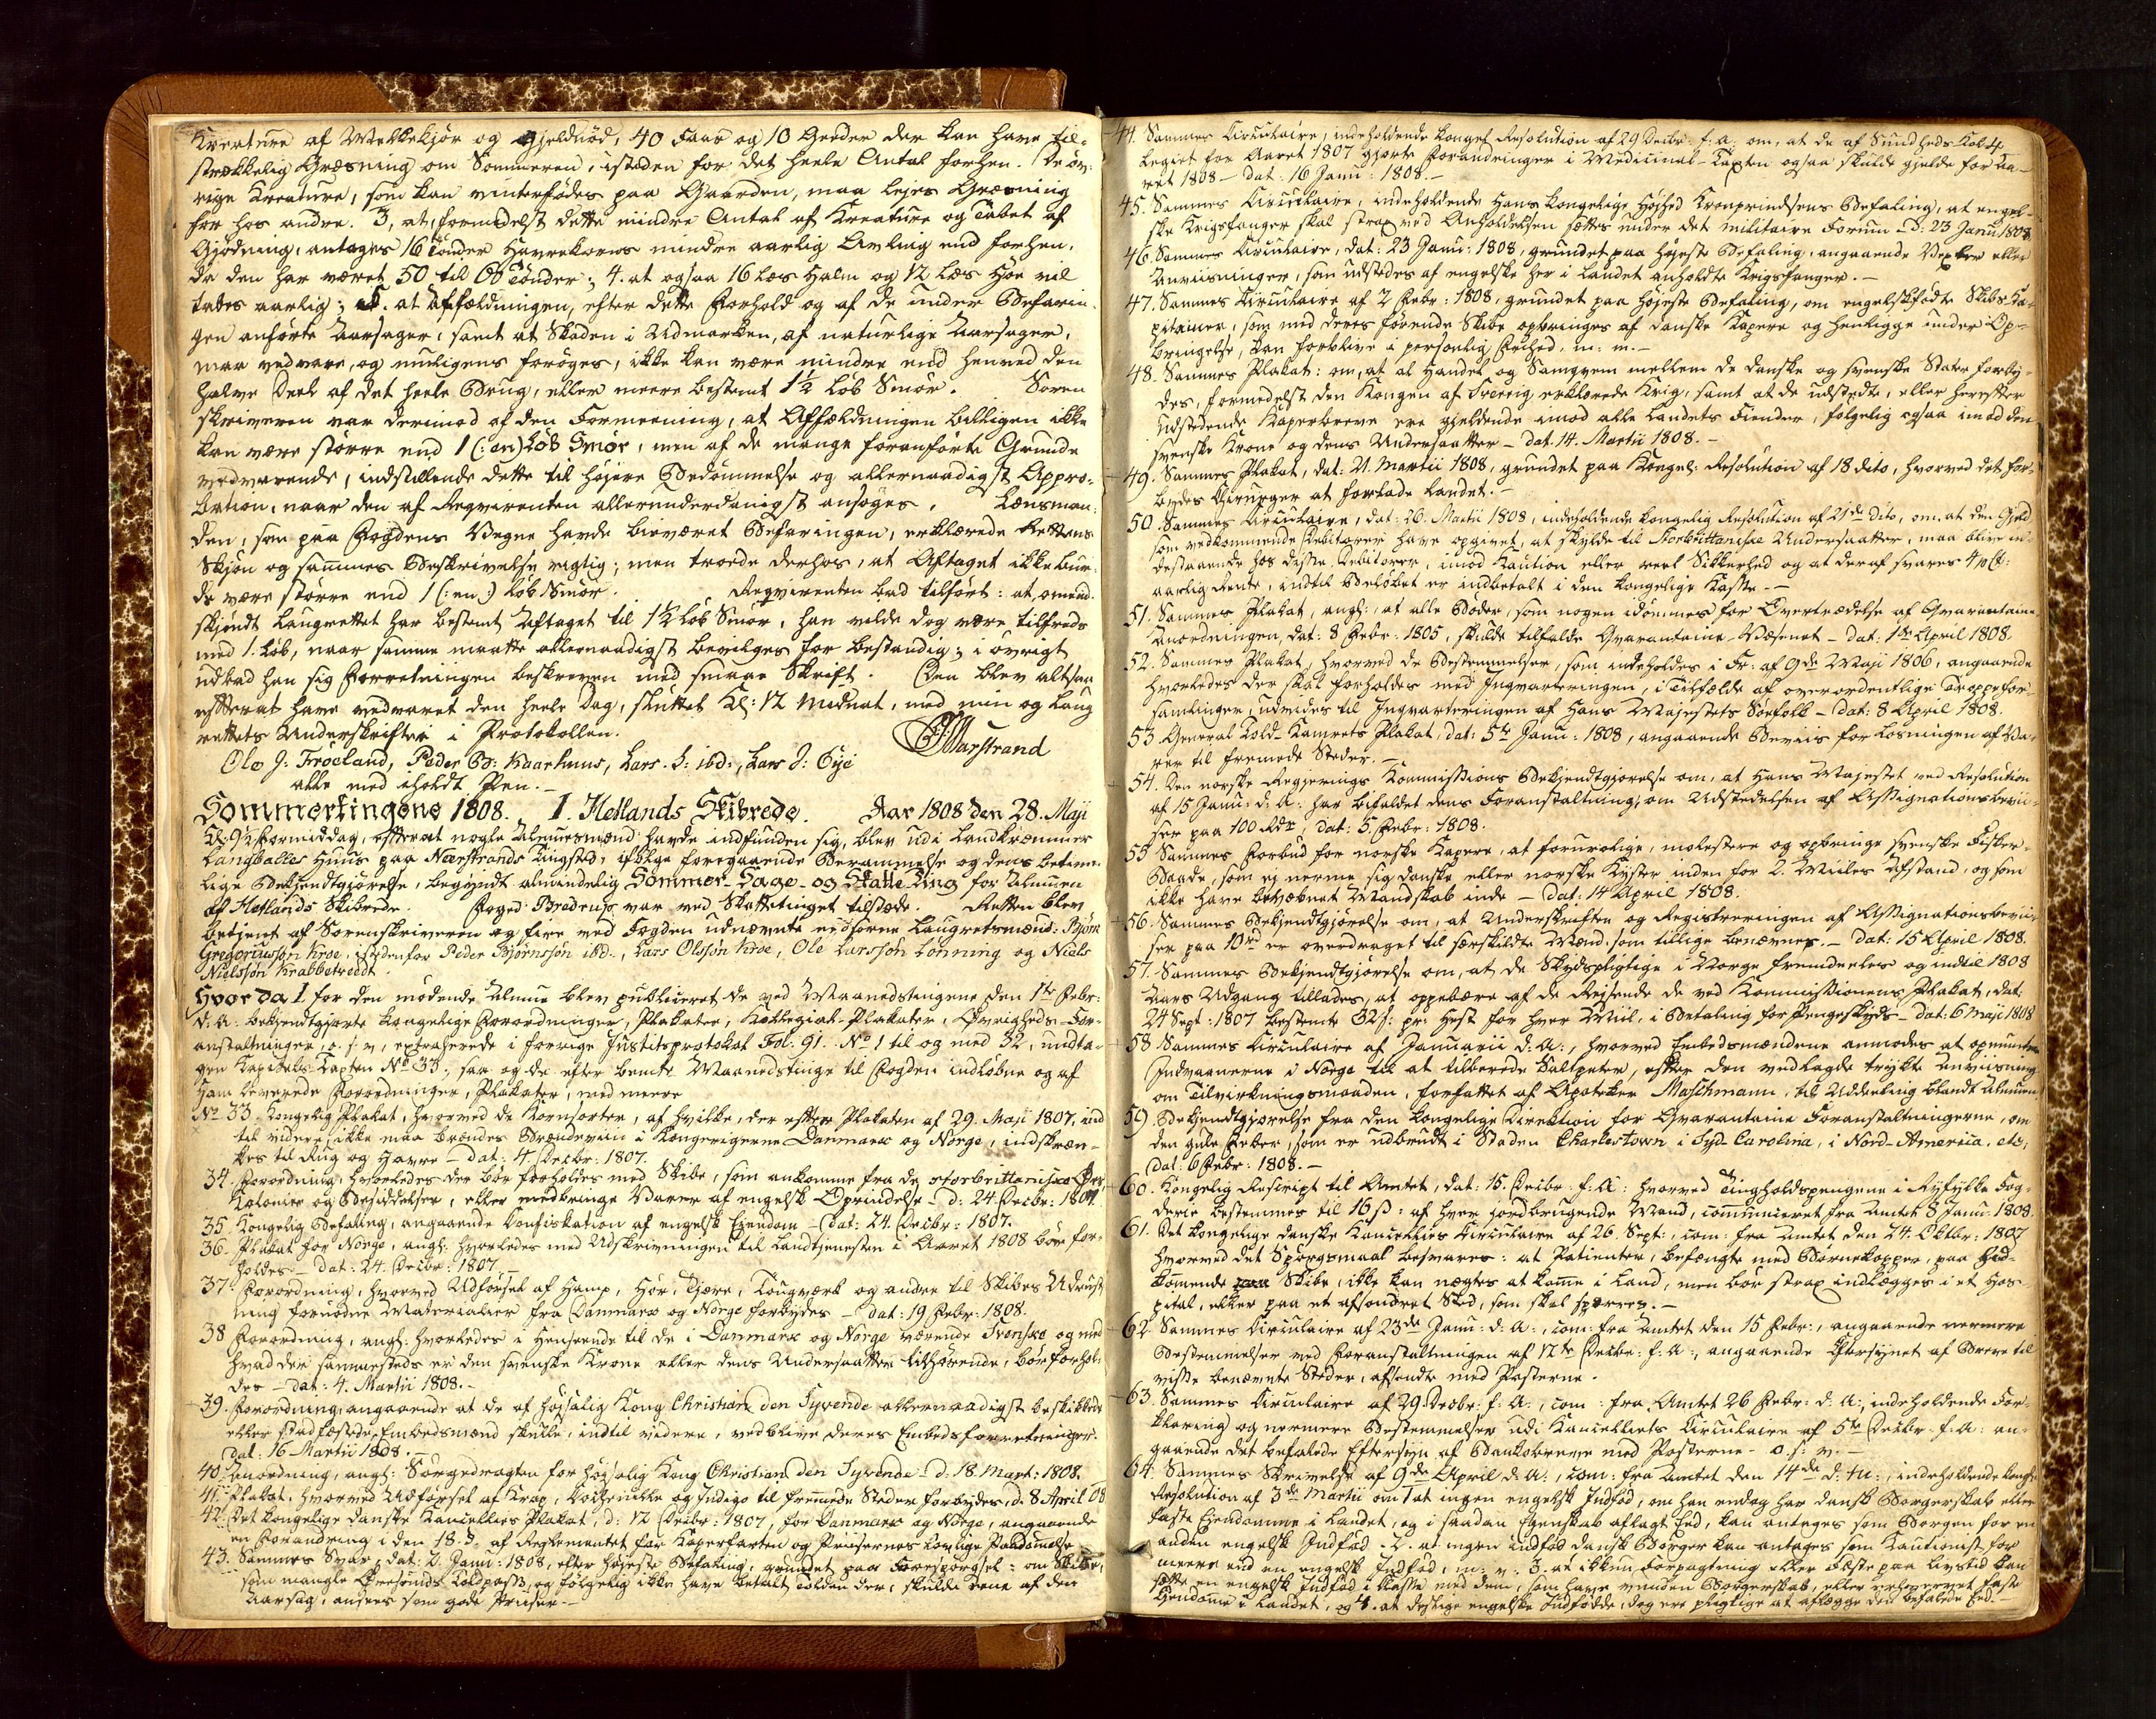 Kreature af Melkekjør og Gjeldnød, 40 Faar og 10 Geeder der kan have til-
strækkelig Græsning om Sommeren, isteden for det heele Antal forhen. De øv-
rige Kreature, som kan vinterfødes paa Gaarden, maa lejes Græsning
for hos andre. 3, at formedelst dette mindre Antal af Kreature og Tabet af
Gjødning, antages 16 Tønder Havrekorns mindre aarlig Avling end forhen,
da den har været 50 til 60 Tønder; 4. at ogsaa 16 Læs Halm og 12 Læs Høe vil
tabes aarlig; 5. at Affældningen, efter dette Forhold og af de under Befarin-
gen anførte Aarsager, samt at Skaden i Udmarken, af naturlige Aarsager,
maa vedvare, og muligens forøges, ikke kan være mindre end henved den
halve Deel af det heele Brug, eller meere bestemt 1½ Løb Smør. Soren
skriveren var derimod af den Formeening, at Affældningen billigen ikke
kan være større end 1 (: en) Løb Smør, men af de mange foranførte Grunde
vedvarende, indstillende dette til højere Bedømmelse og allernaadigst Appro-
bation, naar den af Reqvirenten allerunderdanigst ansøges. Lænsman-
den, som paa Fogdens Vegne havde biværet Befaringen, erklærede Rettens
Skjøn og sammes Beskrivelse rigtig; men troede derhos, at Aftaget ikke bur-
de være større end 1 (: en :) Løb Smør. Reqvirenten bad tilført: at, omend-
skjøndt Laugrettet har bestemt Aftaget til 1½ Løb Smør, han vilde dog være tilfreds
med 1. Løb, naar samme maatte allernaadigst bevilges for bestandig; i øvrigt
udbad han sig Forretningen beskreven med smaae Skrift. Den blev altsaa
efterat have vedvaret den heele Dag, sluttet Kl: 12 Midnat, med min og Laug
rettets Underskrifter i Protokollen. Marstrand
Ole J: Frøeland, Peder B: Kaarhuus, Lars S: ibd:, Lars J: Øÿe
alle med iholdt Pen.
Sommertingene 1808. 1. Hetlands Skibrede. Aar 1808 den 28. Maji
Kl: 9½ Formiddag, efterat nogle Almuesmænd havde indfunden sig, blev udi Landkræmmer
Langballes Huus paa Nærstrands Tingsted, ifølge foregaaende Berammelse og dens betime-
lige Bekjendtgjørelse, begyndt almindelig Sommer- Sage- og Skatte Ting for Almuen
af Hetlands Skibrede. Foged Bredrup var ved Skattetinget tilstæde. Retten blev
betjent af Sorenskriveren og fire ved Fogden udnævnte eedsvorne Laugrettesmænd: Bjørn
Gregoriussøn Kroe, istedenfor Peder Bjørnssøn ibd., Lars Olssøn Kroe, Ole Larssøn Lønning og Niels
Nielssøn Krabbetvedt.
Hvor da 1 for den mødende Almue blev publiceret de ved Maanedstingene den 1te Febr:
d. A: bekjendtgjorte kongelige Forordninger, Plakater, Kollegial-Plakater, Øvrigheds-For-
anstaltninger, o. s. v., extraherede i forrige Justitsprotokol Fol: 91. No 1 til og med 32, undta-
gen Kapitels-Taxten No 33, saa og de efter bemte Maanedstinge til Fogden indløbne og af
ham leverede Forordninger, Plakater, med meere
No 33. Kongelig Plakat, hvorved de Kornsorter, af hvilke, der efter Plakaten af 29. Maji 1807, ind
til videre, ikke maa brændes Brændeviin i Kongerigerne Danmark og Norge, indskræn-
kes til Rug og Havre – dat: 4 Decbr: 1807.
34. Forordning, hvorledes der bør forholdes med Skibe, som ankomme fra de storbrittaniske Øer
Kolonier og Besiddelser, eller medbringe Varer af engelsk Oprindelse – d: 24 Decbr: 1807.
35. Kongelig Befaling, angaaende Konfiskation af engelsk Ejendom – dat: 24. Decbr: 1807.
36. Plakat for Norge, angl: hvorledes med Udskrivningen til Landtjenesten i Aaret 1808 bør for-
holdes – dat: 24. Decbr: 1807. –
37. Forordning, hvorved Udførsel af Hamp, Hør, Tjære, Tougværk og andre til Skibes Udrust-
ning fornødne Materialier fra Danmark og Norge forbydes – dat: 19 Febr: 1808.
38 Forordning, angl: hvorledes i Henseende til de i Danmark og Norge værende Svenske og med
hvad der sammesteds er den svenske Krone eller dens Undersaatter tilhørende, bør forhol-
des – dat: 4. Martii 1808. –
39. Forordning, angaaende at de af højsalig Kong Christian den Syvende allernaadigst beskikkede
eller stadfæstede Embedsmænd skulle, indtil videre, vedblive deres Embedsforretninger.
dat: 16 Martii 1808. –
40. Anordning, angl: Sørgedragten for højsalig Kong Christian den Syvende – d: 18. Mart: 1808.
41. Plakat, hvorved Udførsel af Krap, Cochenille og Indigo til fremmede Steder forbydes, d: 8 April 08
42. Det kongelige danske Kancellies Plakat, d: 12 Decbr: 1807, for Danmark og Norge, angaaende
en Forandring i den 18. §. af Reglementet for Kaperfarten og Prisernes lovlige Paadømmelse
43. Sammes Svar, dat: 2. Janu: 1808, efter højeste Befaling, grundet paa Forespørgsel: om Skibe,
som mangle Øresunds Toldpass, og følgelig ikke have betalt Tolden der, skulde bare af den
Aarsag, ansees som gode Priser. –
44. Sammes Circulaire, indeholdende kongel: Resolution af 29 Decbr: f: a: om, at de af Sundheds Kol-
legiet for Aaret 1807 gjorte Forandringer i Medicinal-Taxten ogsaa skulde gjelde for Aa-
ret 1808 – dat: 16 Janu: 1808. –
45. Sammes Circulaire, indeholdende Hans kongelige Højhed Kronprindsens Befaling, at engel-
ske Krigsfanger skal strax ved Anholdelsen sættes under det militaire Forum – d: 23 Janu: 1808
46. Sammes Circulaire, dat: 23 Janu: 1808, grundet paa højeste Befaling, angaaende Vexler eller
Anviisninger, som udstedes af engelske her i Landet anholdte Krigsfanger. –
47. Sammes Circulaire af 2 Febr: 1808, grundet paa højeste Befaling, om engelskfødte Skibs-Ca-
pitainer, som med deres førende Skibe opbringes af danske Kapere og henligge under Op-
bringelse, kan forblive i personlig Frihed. m: m. –
48. Sammes Plakat: om, at al Handel og Samqvem mellem de danske og svenske Stater forby-
des, formedelst den Kongen af Sverrig erklærede Krig, samt at de udstedte, eller herefter
udstedende Kaperbreve ere gjeldende imod alle Landets Fiender, følgelig ogsaa imod den
svenske Krone og dens Undersaatter – dat. 14. Martii 1808. –
49. Sammes Plakat, dat: 21. Martii 1808, grundet paa Kongel: Resolution af 18 dito, hvorved det for-
bydes Chirurger at forlade Landet. –
50. Sammes Circulaire, dat: 26. Martii 1808, indeholdende kongelig Resolution af 21de dito, om, at den Gjeld
som vedkommende Debitorer have opgivet, at skylde til Storbrittaniske Undersaatter, maa blive in-
destaaende hos disse Debitorer, imod Kaution eller reel Sikkerhed og at deraf svares 4 pCt:
aarlig Rente, indtil Beløbet er indbetalt i den kongelige Kasse. –
51. Sammes Plakat, angl:, at alle Bøder, som nogen idømmes for Overtrædelse af Qvarantaine
Anordningen, dat: 8 Febr: 1805, skulde tilfalde Qvarantaine-Væsenet – dat: 1te April 1808.
52. Sammes Plakat, hvorved de Bestemmelser, som indeholdes i Fr: af 9de Maji 1806, angaaende
hvorledes der skal forholdes med Inqvarteringen, i Tilfælde af overordentlige Troppefor-
samlinger, udvides til Inqvarteringen af Hans Majestets Søefolk – dat: 8 April 1808.
53. General Told-Kamrets Plakat, dat: 5te Janu: 1808, angaaende Beviis for Losningen af Va-
rer til fremmede Steder. –
54. Den norske Regjerings Kommissions Bekjendtgjørelse om, at Hans Majestet ved Resolution
af 15 Janu: d: A: har bifaldet dens Foranstaltning, om Udstedelsen af Assignationsbevii-
ser paa 100 Rdr, dat: 5. Febr: 1808.
55 Sammes Forbud for norske Kapere, at forurolige, molestere og opbringe svenske Fisker-
Baade, som ej nærme sig danske eller norske Kyster inden for 2. Miiles Afstand, og som
ikke have bevæbnet Mandskab inde – dat: 14 April 1808.
56. Sammes Bekjendtgjørelse om, at Underskriften og Registreringen af Assignationsbevii-
ser paa 10rd er overdraget til særskildte Mænd, som tillige benævnes. – dat: 15 April 1808.
57. Sammes Bekjendtgjørelse om, at de Skydspligtige i Norge fremdeeles og indtil 1808
Aars Udgang tillades, at oppebære af de Rejsende de ved Kommissionens Plakat, dat:
24 Sept: 1807 bestemte 32 s: pr: Hest for hver Miil, i Betaling for Pengeskyds – dat: 6 Maji 1808
58 Sammes Circulaire af Januarii d: A:, hvorved Embedsmændene anmodes at opmuntre
Indvaanerne i Norge til at tilberede Salpeter, efter den vedlagde trykte Anviisning
om Tilvirkningsmaaden, forfattet af Apoteker Maschmann, til Uddeeling blandt Almuen
59. Bekjendtgjørelse fra den kongelige Direktion for Qvarantaine Foranstaltningerne, om
den gule Feber, som er udbrudt i Staden Charlestown i Syd-Carolina, i Nord-America, etc,
dat: 6 Febr: 1808. –
60. Kongelig Rescript til Amtet, dat: 15. Decbr: f: A: hvorved Tingholdspengene i Ryfylke Fog-
derie bestemmes til 16 s: af hver jordbrugende Mand, communiceret fra Amtet 8 Janu: 1808.
61. Det kongelige danske Kancellies Circulaire af 26 Sept:, com: fra Amtet den 24. Oktbr: 1807
hvorved det Spørgsmaal besvares: at Patienter, befængte med Børnekopper, paa Ind-
kommende Skibe, ikke kan nægtes at komme i Land, men bør strax indlægges i et Hos-
pital, eller paa et afsondret Sted, som skal spærres. –
62. Sammes Circulaire af 23de Janu: d: A:, com: fra Amtet den 15 Febr:, angaaende nærmere
Bestemmelser ved Foranstaltningen af 12te Decbr: f: A:, angaaende Eftersynet af Breve til
visse benævnte Steder, afsendte med Posterne.
63. Sammes Circulaire af 29. Decbr: f: A:, com: fra Amtet 26 Febr: d: A:, indeholdende For-
klaring og nærmere Bestemmelser udi Kancelliets Circulaire af 5te Decbr: f: A: an-
gaaende det befalede Eftersyn af Bankobreve med Posterne. o: s: v. –
64. Sammes Skrivelse af 9de April d: A:, com: fra Amtet den 14de d: M:, indeholdende kongl:
Resolution af 3de Martii om 1 at ingen engelsk Indfød, om han endog har dansk Borgerskab eller
faste Ejendomme i Landet, og i saadan Egenskab aflagt Eed, kan antages som Borgen for en
anden engelsk Indfød. 2. at ingen indfød dansk Borger kan antages som Kautionist for
meere end en engelsk Indfød, m: v: 3. at ikkun Forpagtning eller Fæste paa Livstid kan
sætte en engelsk Indfød i Klasse med dem, som have vunden Borgerskab, eller erhvervet faste
Ejendomme i Landet, og 4. at deslige engelske Indfødde, dog ere pligtige at aflægge den befalede Eed. –